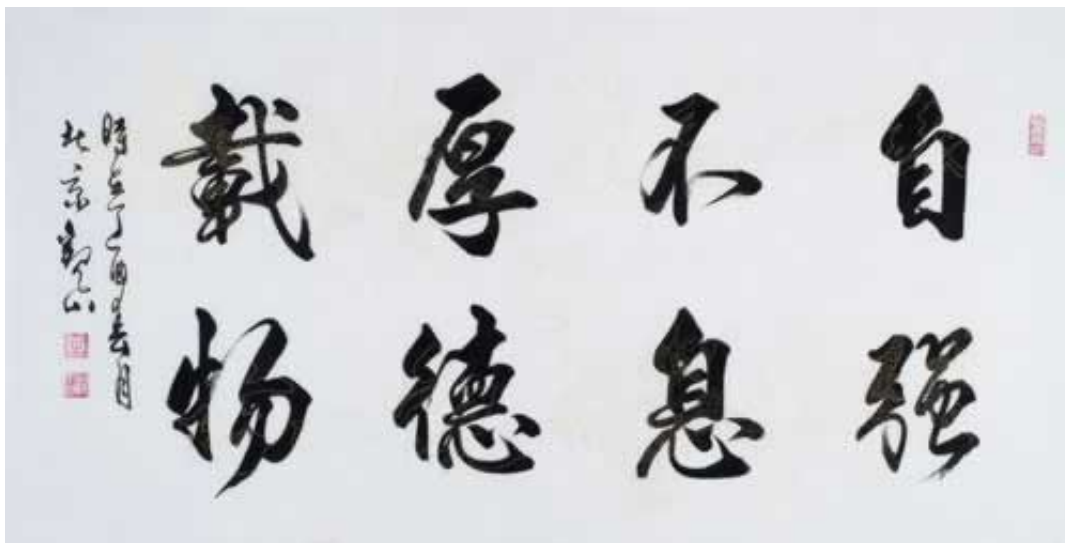 自强
不息
厚德
載物
時在丁酉春月
北京観山